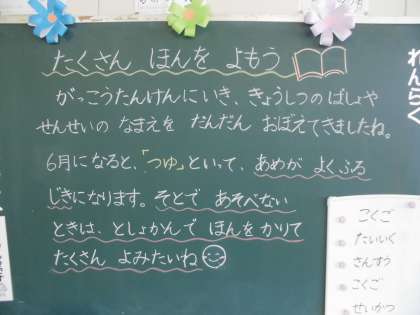 たくさん ほんを よもう
がっこうたんけんにいき、きょうしつのばしょや
せんせいの なまえを だんだん おぼえてきましたね。
6月になると、「つゆ」といって、あめが よくふる
じきになります。そとで あそべない
ときは、としょかんで ほんをかりて
たくさん よみたいね
れんらく
こくご
たいいく
さんすう
こくご
せいかつ